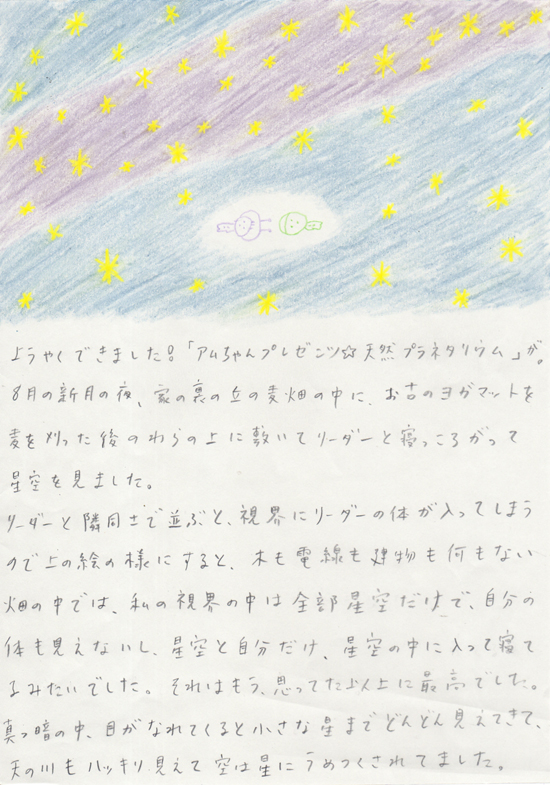 ようやくできました!「アムちゃんプレゼンツ☆天然プラネタリウム」が。
8月の新月の夜、家の裏の丘の麦畑の中に、お古のヨガマットを
麦を刈った後のわらの上に敷いてリーダーと寝っころがって
星空を見ました。
リーダーと隣同士で並ぶと、視界にリーダーの体が入ってしまう
ので上の絵の様にすると、木も電線も建物も何もない
畑の中では、私の視界の中は全部星空だけで、自分の
体も見えないし、星空と自分だけ、星空の中に入って寝て
るみたいでした。それはもう、思ってた以上に最高でした。
真っ暗の中、目がなれてくると小さな星までどんどん見えてきて、
天の川もハッキリ見えて空は星にうめつくされてました。